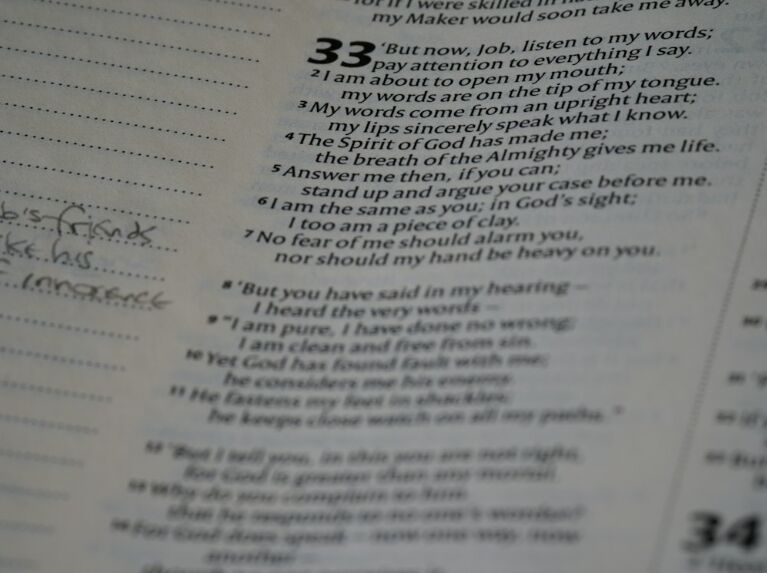 for if I were skilled in
my Maker would soon take me away.
33 ‘But now, Job, listen to my words;
pay attention to everything I say.
2 I am about to open my mouth;
my words are on the tip of my tongue.
3 My words come from an upright heart;
my lips sincerely speak what I know.
4 The Spirit of God has made me;
the breath of the Almighty gives me life.
5 Answer me then, if you can;
stand up and argue your case before me.
6 I am the same as you in God’s sight;
I too am a piece of clay.
7 No fear of me should alarm you,
nor should my hand be heavy on you.
8 ‘But you have said in my hearing –
I heard the very words –
9 “I am pure, I have done no wrong;
I am clean and free from sin.
10 Yet God has found fault with me;
he considers me his enemy.
11 He fastens my feet in shackles;
he keeps close watch on all my paths.”
12 ‘But I tell you, in this you are not right,
for God is greater than any mortal.
13 Why do you complain to him
that he responds to no one’s words?
14 For God does speak – now one way, now
another –
friends
his
innocence
34